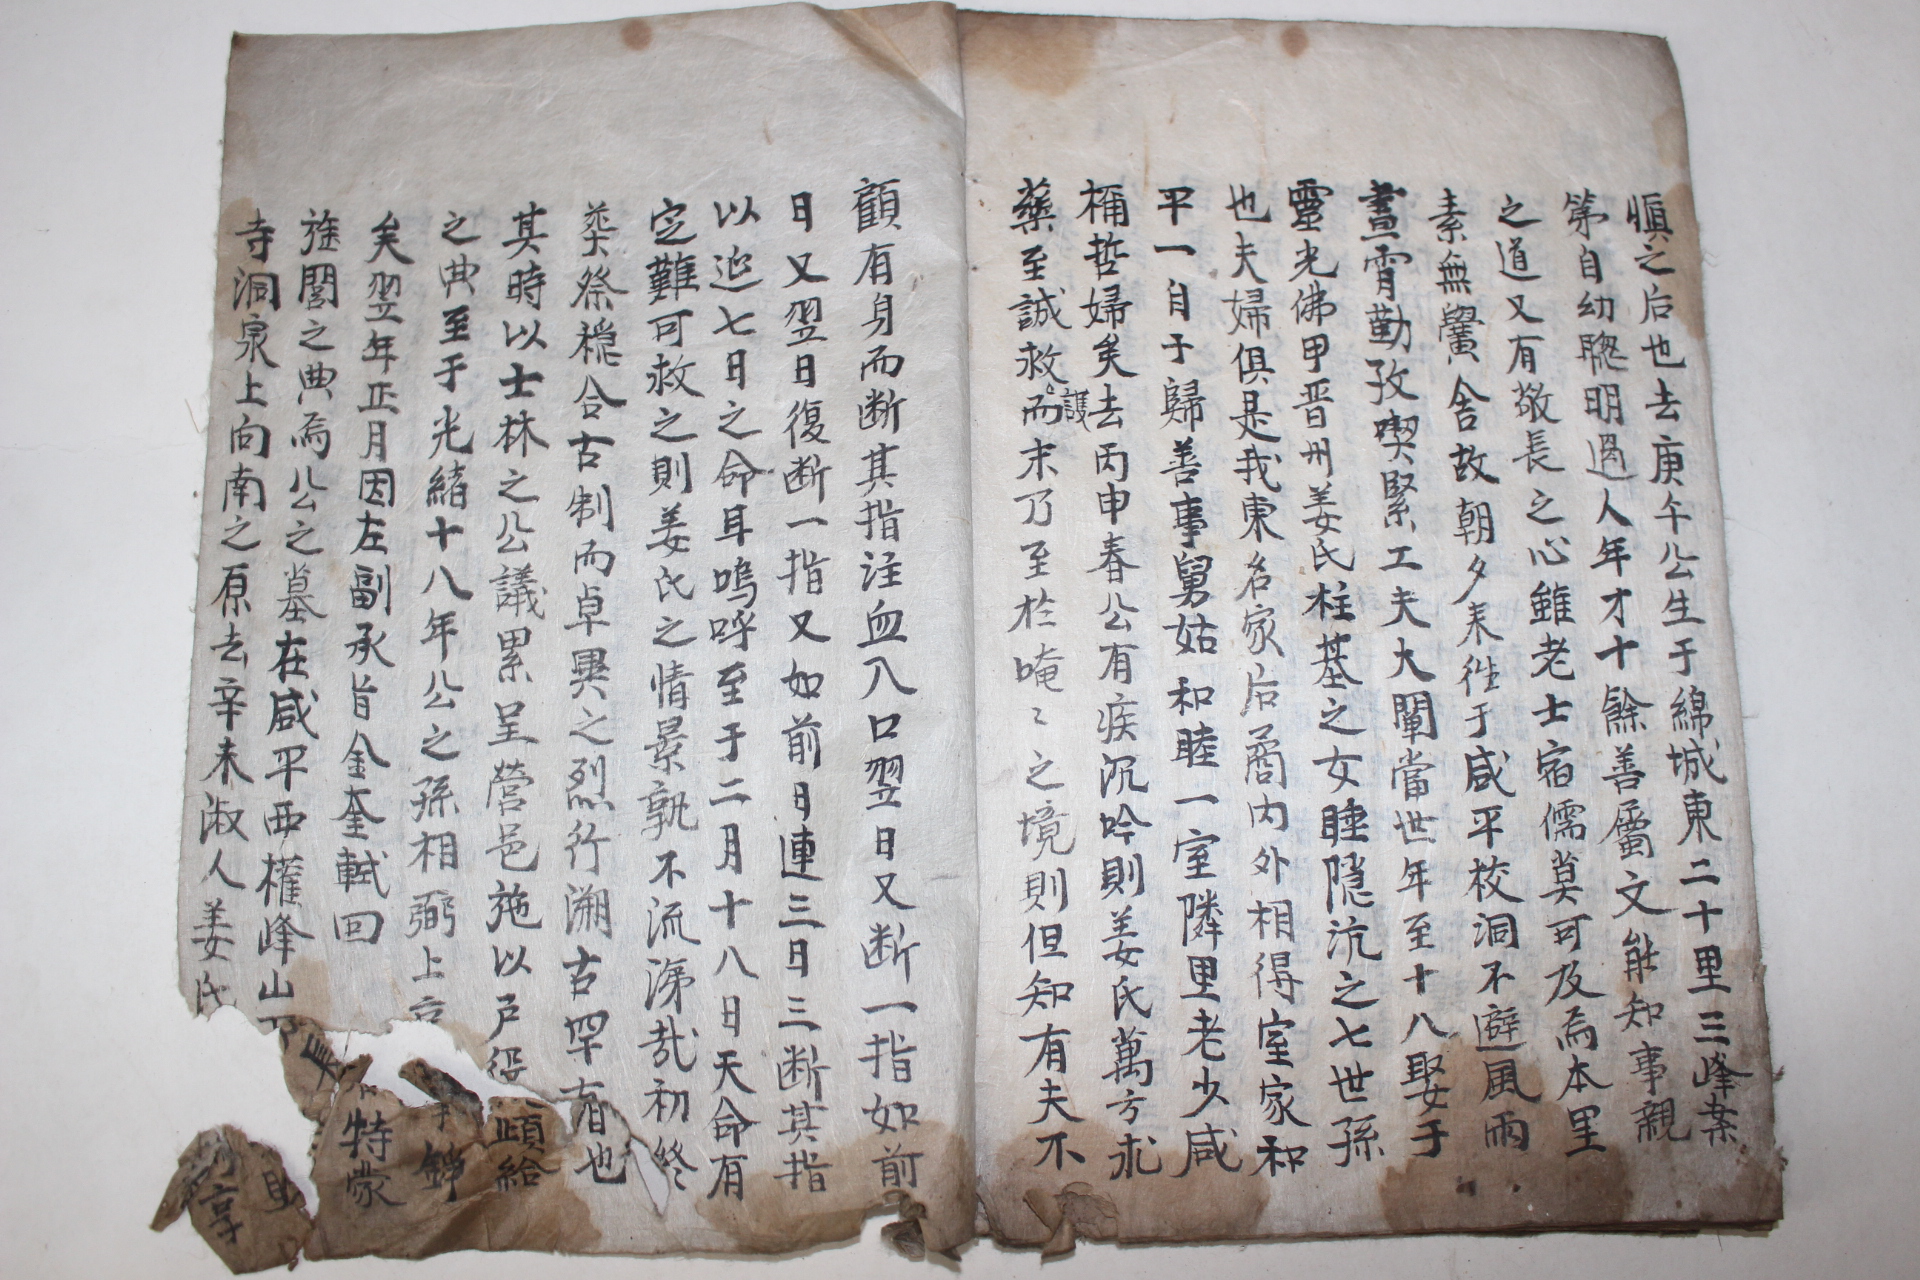 愼之后也去庚午公生于綿城東二十里三峰案
第自幼聰明過人年才十餘善屬文能知事親
之道又有敬長之心雖老士宿儒莫可及焉本里
素無黌舍故朝夕來往于咸平校洞不避風雨
晝宵勤孜喫緊工夫大闡當世年至十八娶于
靈光佛甲晋州姜氏柱基之女睡隱沆之七世孫
也夫婦俱是我東名家后裔內外相得室家和
平一自于歸善事舅姑和睦一室隣里老少咸
稱哲婦矣去丙申春公有疾沉吟則姜氏萬方求
藥至誠救護而末乃至於唵〻之境則但知有夫不
顧有身而断其指注血入口翌日又断一指如前
日又翌日復断一指又如前日連三日三断其指
以延七日之命耳嗚呼至于二月十八日天命有
定難可救之則姜氏之情景孰不流涕哉初終
葬祭穩合古制而卓異之烈行溯古罕有也
其時以士林之公議累呈營邑施以戶役頉給
之典至于光緖十八年公之孫相弼上言錚
矣翌年正月因左副承旨金奎軾回特蒙
旌閭之典焉公之墓在咸平西權峰山下
寺洞泉上向南之原去辛未淑人姜氏享